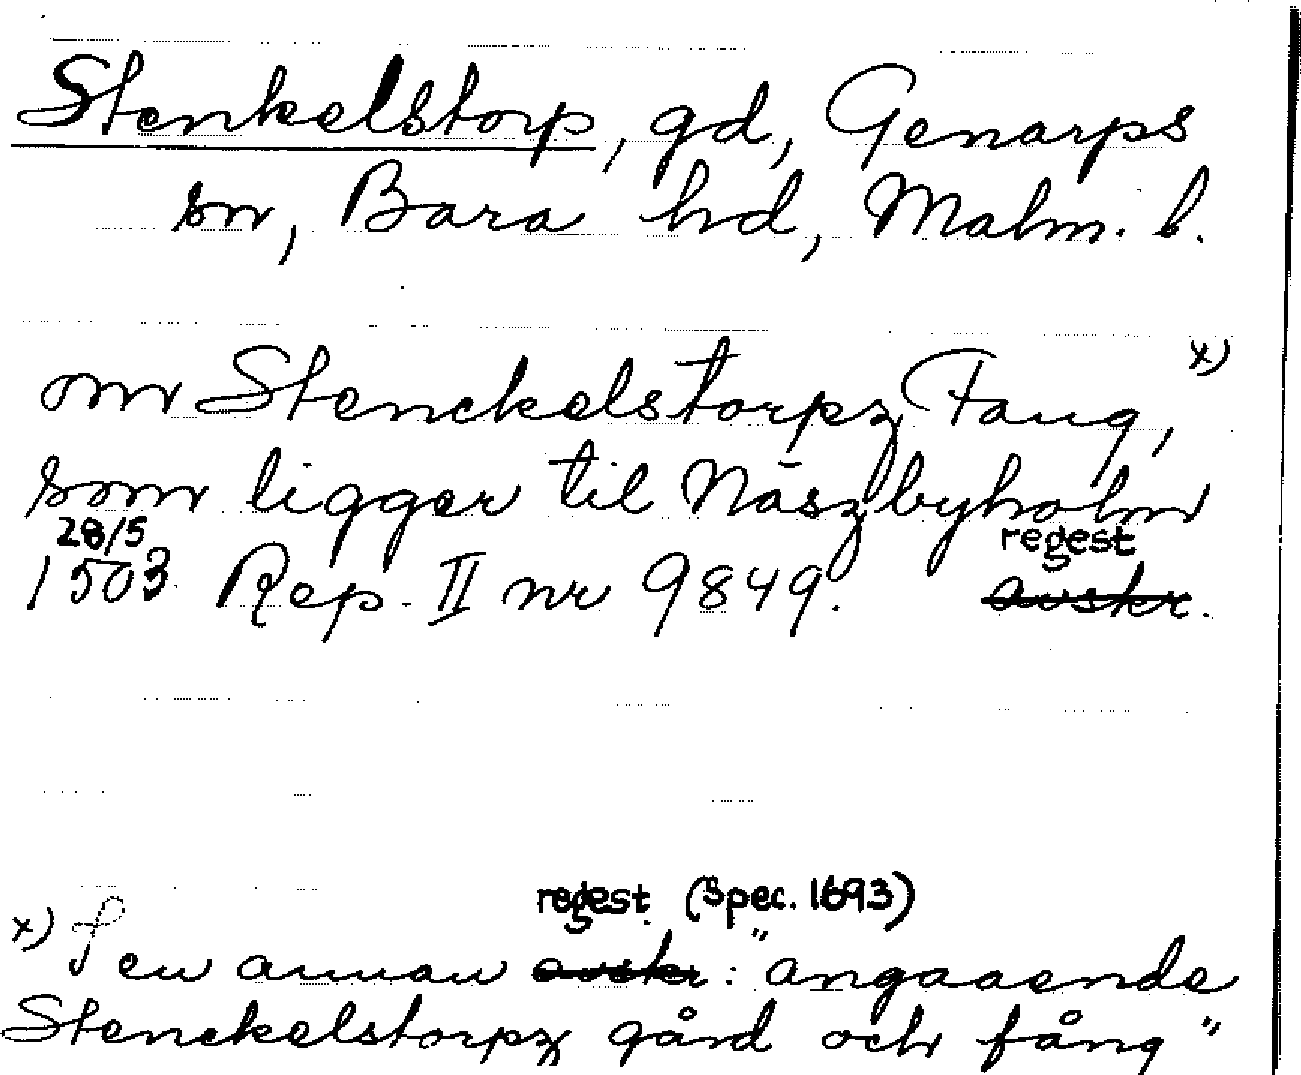 Stenkelstorp, gd, Genarps
sn, Bara hd, Malm. l.
om Stenckelstorpz Fang, x)
som ligger til Näszbyholm
28/5 regest
1503 Rep. II nr 9849. avskr.
regest (Spec. 1693)
x) I en annan avskr: "angaaende
Stenckelstorpz gård och fång"